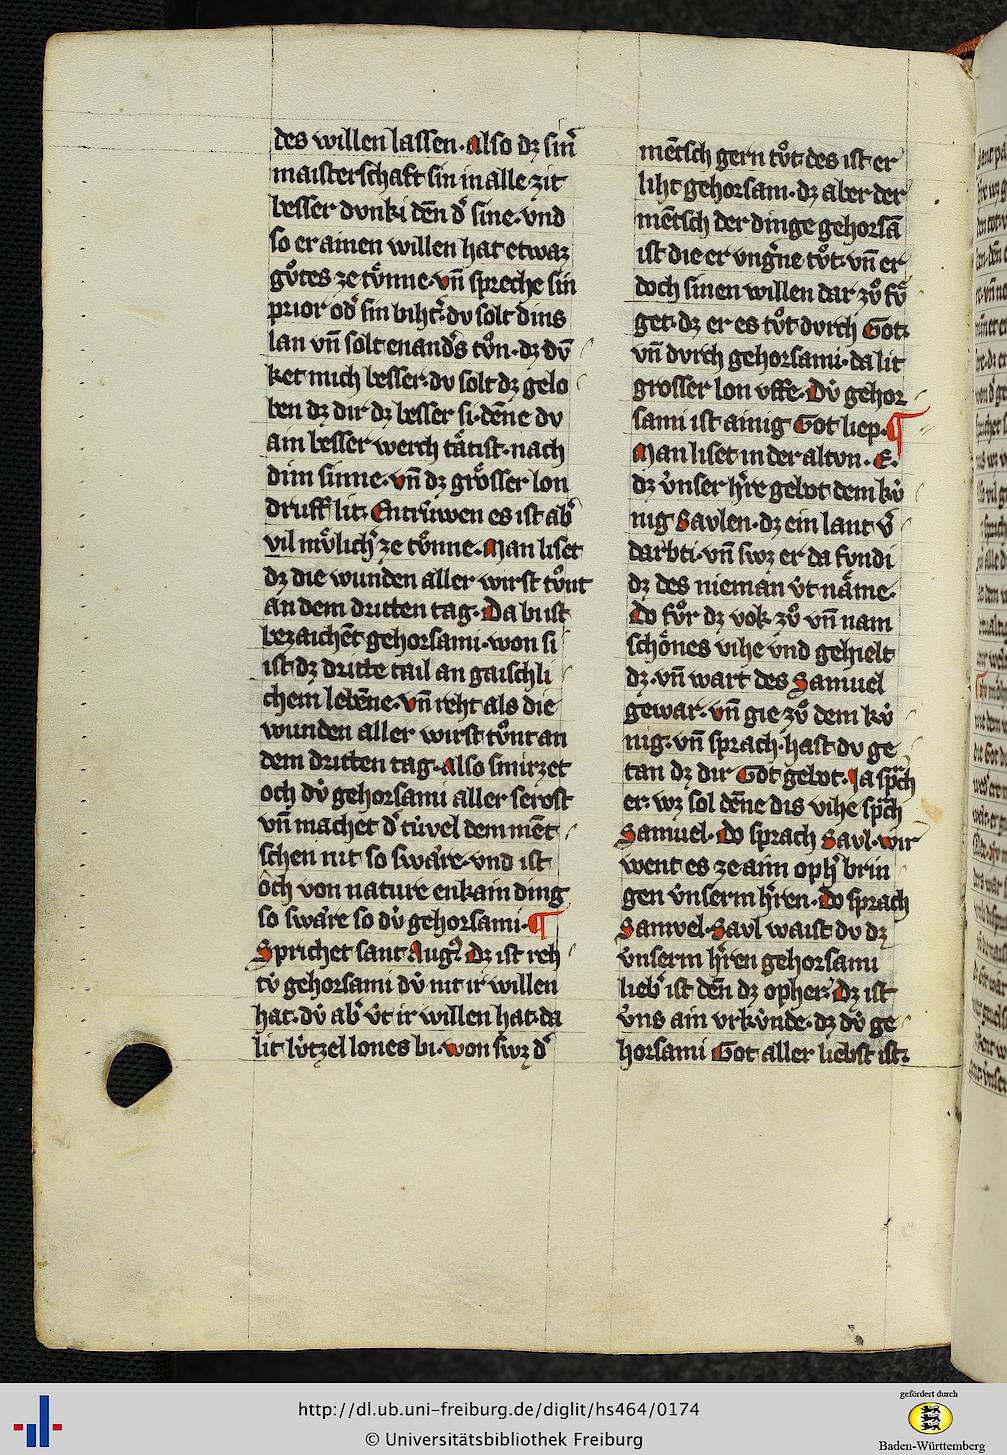 des willen lassen. Also dz sin̄
maisterschaft sin in alle zit
besser dvnki dēn d᾽ sine. vnd
so er ainen willen hat etwaz
gv̊tes ze tv̊nne. vn̄ spreche sin
prior od᾽ sin biht᾽. dv solt dins
lan vn̄ solt enand᾽s tv̊n. dz dv̄
ket mich besser. dv solt dz gelo
ben dz dir dz besser si. dēne dv
ain besser werch tǎtist. nach
dim sinne. vn̄ dz gro᷎sser lon
druff lit. Entrv̓wen es ist ab᾽
vil mv̓lich᾽ ze tv̊nne. Man liset
dz die wunden aller wirst tv̊nt
an dem dritten tag. Da bi ist
bezaichēt gehorsami. won si
ist dz dritte tail an gaischli
chem lebēne. vn̄ reht als die
wunden aller wirst tv̊nt an
dem dritten tag. Also smirzet
och dv̓ gehorsami aller serost
vn̄ machet d᾽ tu̓vel dem mēt
schen nit so swa᷎re. vnd ist
ôch von nature enkain ding
so swa᷎re so dv̓ gehorsami. ¶
Sprichet sant Aug᾽. Dz ist reh
tv̓ gehorsami dv̓ nit ir willen
hat. dv̓ ab᾽ v̓t ir willen hat. da
lit lv̓tzel lones bi. won swz d᾽
mētsch gern tv̊t des ist er
liht gehorsam. dz aber der
mētsch der dinge gehorsā
ist die er vng᾽ne tv̊t. vn̄ er
doch sinen willen dar zv̊ fv̊
get. dz er es tv̊t dvrch Got.
vn̄ dvrch gehorsami. da lit
grosser lon vffe. Dv̓ gehor
sami ist ainig Got liep. ¶
Man liset in der altvn. E.
dz v̓nser h᾽re gebot dem kv̓
nig Savlen. dz ein lant v᾽
darbti. vn̄ swz er da fvndi
dz des nieman v̓t nǎme.
Do fv̊r dz volk zv̊ vn̄ nam
scho᷎nes vihe vnd gehielt
dz. vn̄ wart des Samuel
gewar. vn̄ gie zv̊ dem kv̓
nig. vn̄ sprach. hast dv ge
tan dz dir Got gebot. Ja sp᾽ch
er. wz sol dēne dis vihe sp᾽ch
Samuel. Do sprach Savl. wir
went es ze aim oph᾽ brin
gen v̓nserm h᾽ren. Do sprach
Samvel. Savl waist dv dz
v̓nserm h᾽ren gehorsami
lieb᾽ ist dēn dz opher. Dz ist
v̓ns ain vrkv̓nde. dz dv̓ ge
horsami Got aller liebst ist.
http://dl.ub.uni-freiburg.de/diglit/hs464/0174
© Universitätsbibliothek Freiburg
gefördert durch
Baden-Württemberg